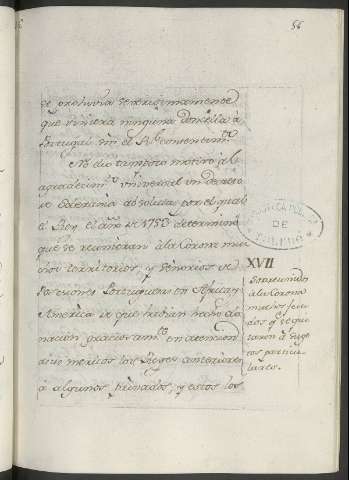 56
se prohivia determinadamente
que viniera ninguna Doncella à
Portugal sin el Rl. consentim.to
No dio tampoco motivo al
agradecim.to universal un decreto
de Soberania absoluta, por el qual
el Rey, el año de 1752 determinó
que se reunieran à la Corona mu
chos territorios, y Señorios de
Posesiones Portuguesas en Africa, y
America de que havian hecho do
nacion graciosam.te en atencion
à sus meritos los Reyes anteriores
à algunos privados; y estos los
DE
XVII
Se reunen
à la Corona
muchos feu
dos q.e se qui
taron à suge
tos particu
lares.